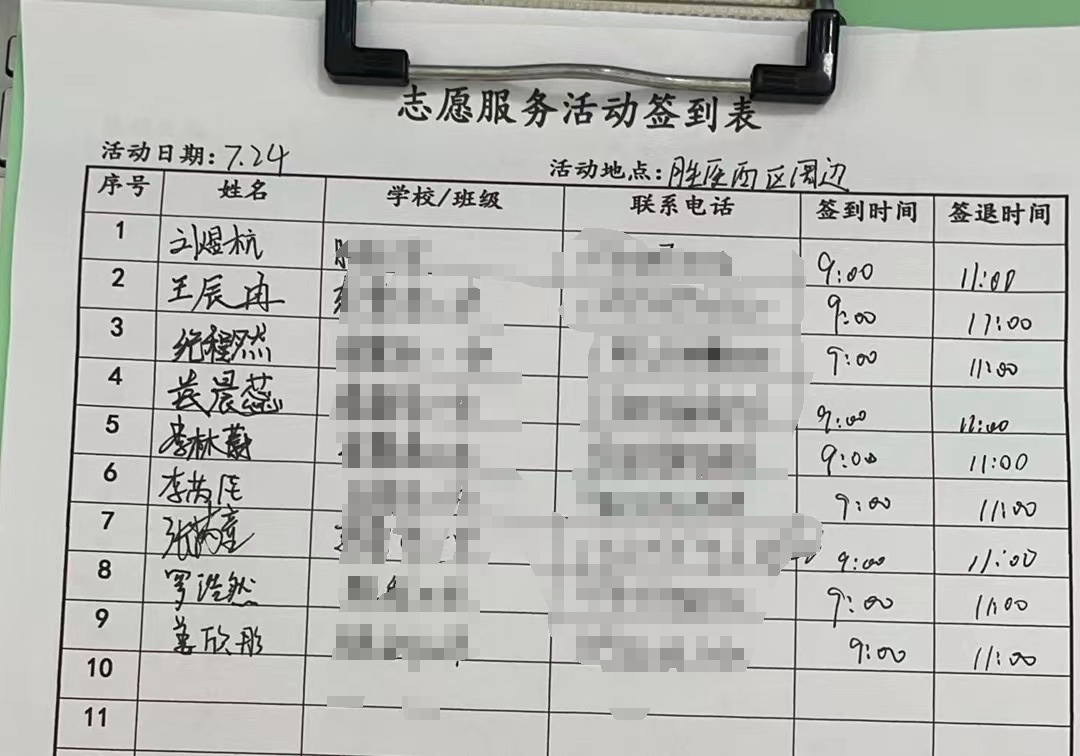 志愿服务活动签到表
活动日期:7.24 活动地点:胜度西区周边
序号 姓名 学校/班级 联系电话 签到时间 签退时间
1 刘煜杭 9:00 11:00
2 王辰冉 9:00 11:00
3 程然 9:00 11:00
4 晨蕊 9:00 11:00
5 李林蔚 9:00 11:00
6 李 9:00 11:00
7 张 童 9:00 11:00
8 罗浩然 9:00 11:00
9 姜欣彤 9:00 11:00
10
11